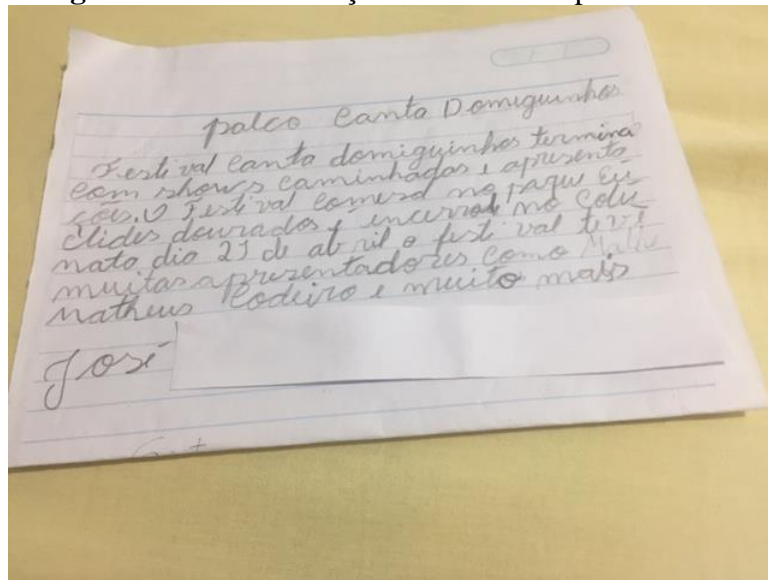 palco Canta Domiguinhos
Festival canta domiguinhos termina
com shows caminhadas e apresenta
ções. O Festival comesa no paque eu
clides dourados e incerrou no colu
nato dia 21 de abril o festival teve
muitas apresentadores como
Matheus Codeiro e muito mais
José